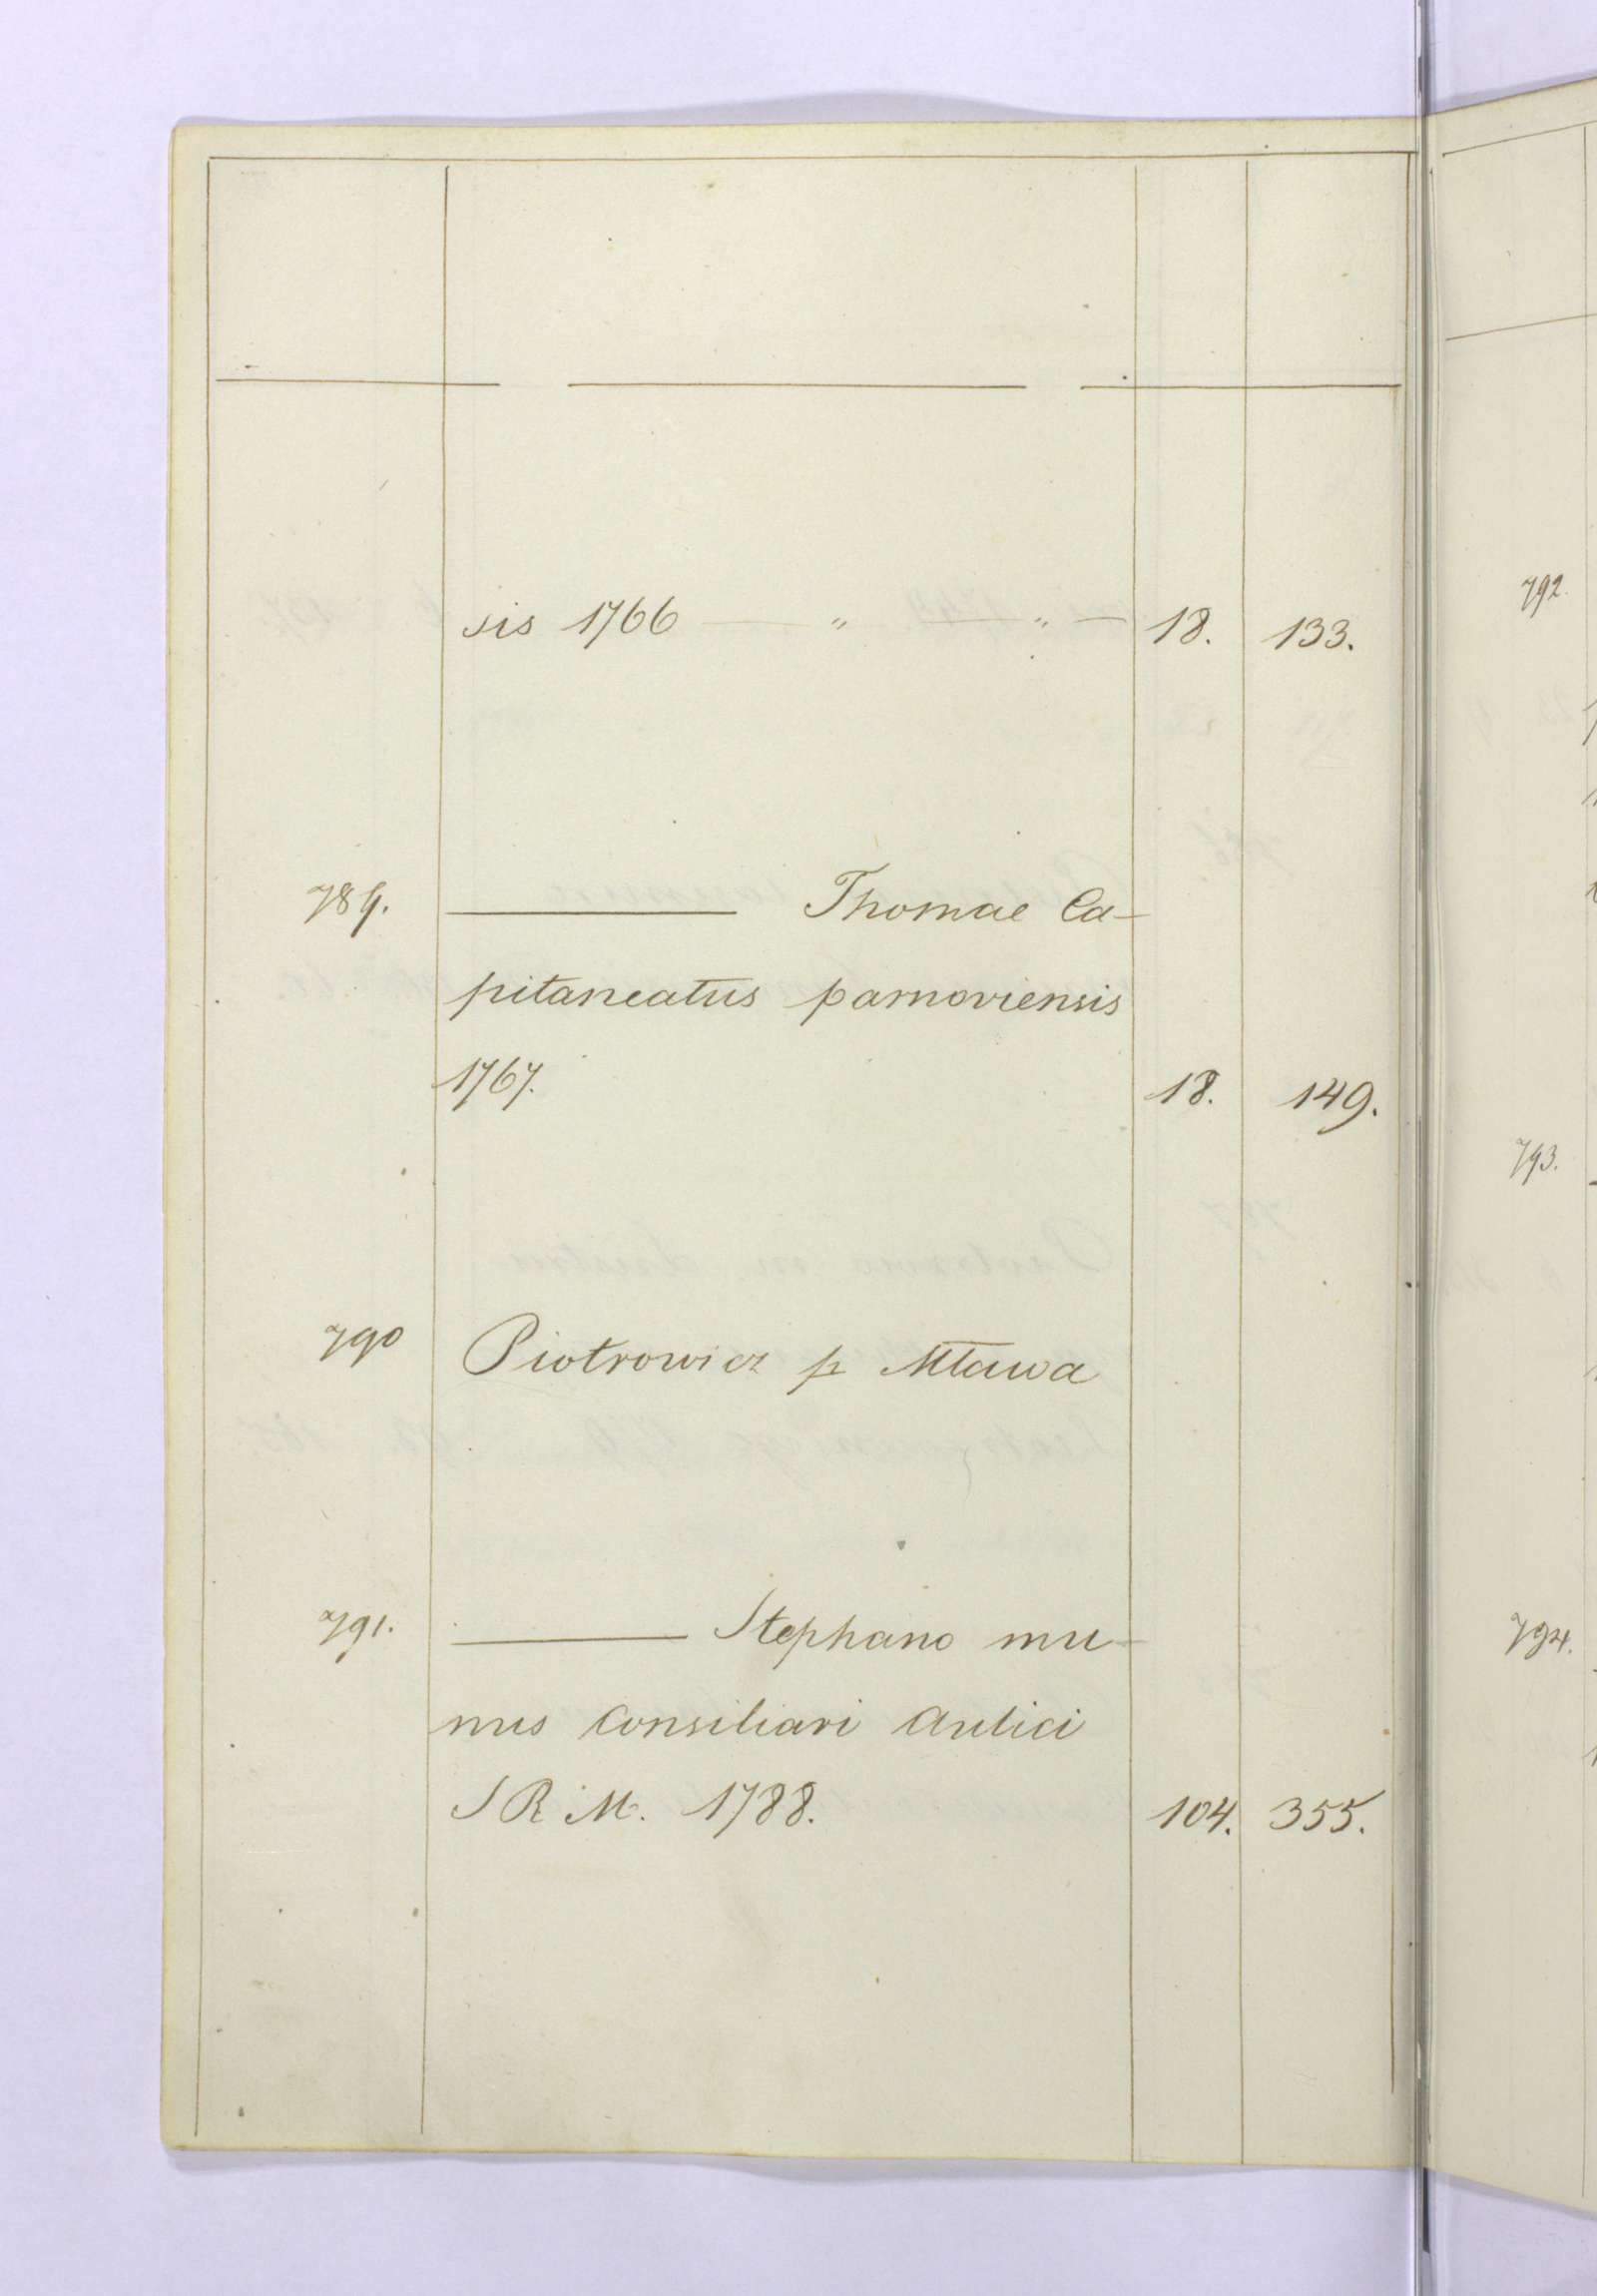 sis 1766 — " — " — 18. 133.
789. ——— Thomae Ca-
pitaneatus parnoviensis
1767. 18. 149.
790 Piotrowicz p Mława
791. ——— Stephano mu-
nus Consiliari Aulici
S R M. 1788. 104. 355.
792.
793.
794.